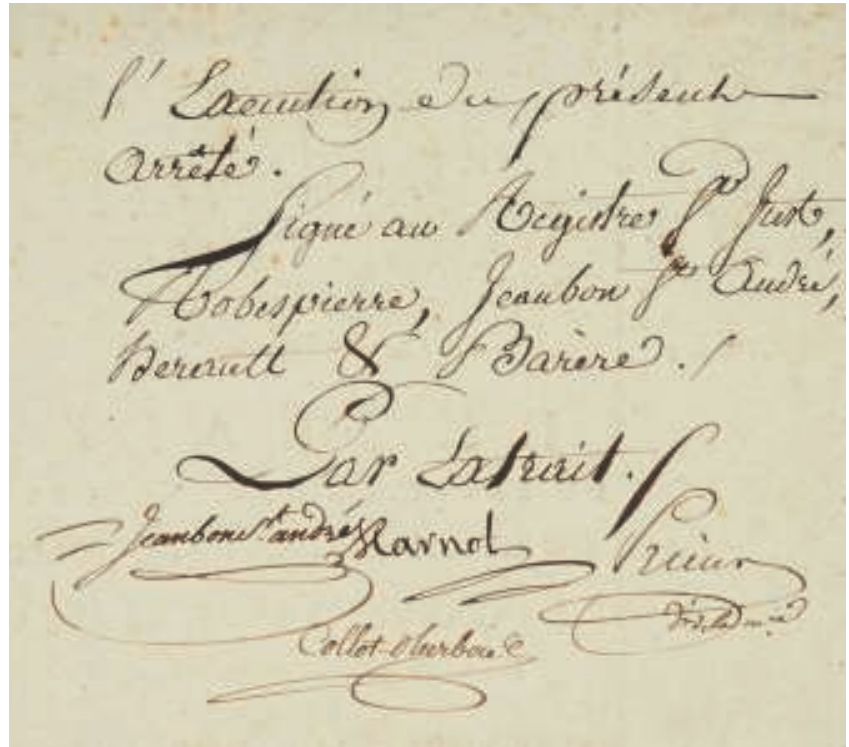 l'Execution du présent
arrêté.
Signé au Registre St Just,
Robespierre, Jeanbon St André,
Herault & Barère.
Par Extrait.
Jeanbon St andré Carnot Prieur
Collot d'herbois